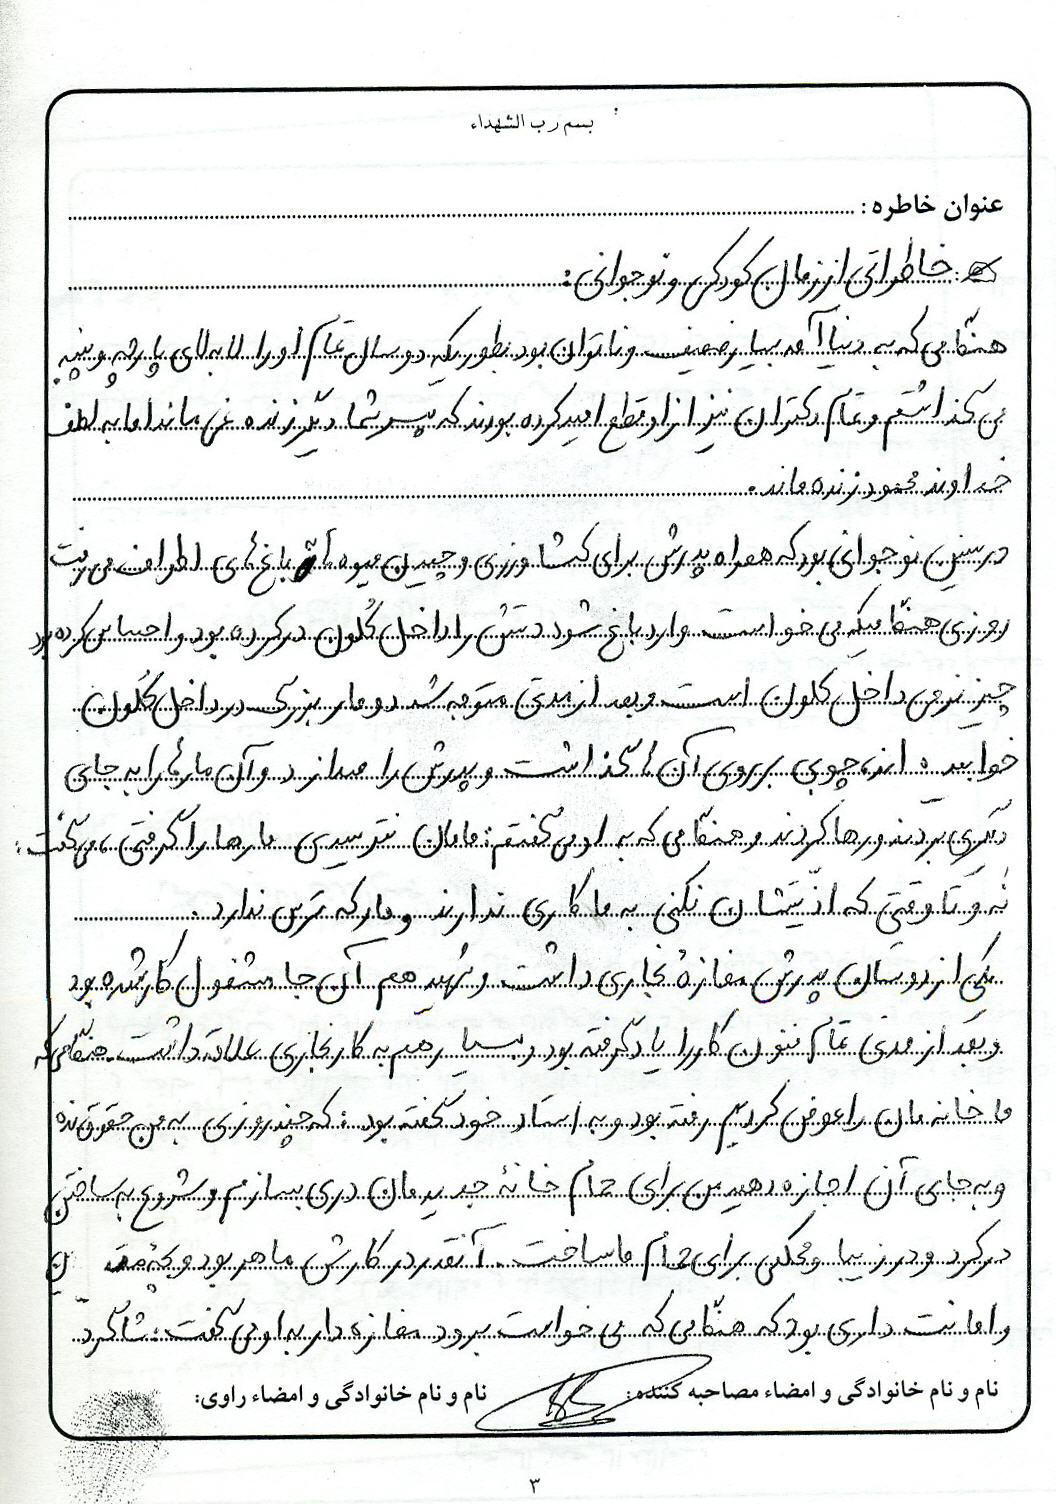 بسم رب الشهداء
عنوان خاطره:
خاطراتی از زمان کودکی و نوجوانی:
هنگامی که به دنیا آمد بسیار ضعیف و ناتوان بود بطوریکه دو سال تمام او را لابه‌لای پارچه و پنبه
می گذاشتم و تمام دکتران نیز از او قطع امید کرده بودند که پسر شما دیگر زنده نمی ماند اما به لطف
خداوند محمود زنده ماند.
در سنین نوجوانی بود که همراه پدرش برای کشاورزی و چیدن میوه ها به باغ های اطراف می رفت
روزی هنگامیکه می خواست وارد باغ شود دستش را داخل کُلون در کرده بود و احساس کرده بود
چیز نرمی داخل کلون است و بعد از مدتی متوجه شد دو مار بزرگ در داخل کُلون
خوابیده اند، چوبی بر روی آن ها گذاشت و پدرش را صدا زد و آن مارها را به جای
دیگری بردند و رها کردند و هنگامی که به او می گفتم: مامان نترسیدی مارها را گرفتی، می گفت:
نه و تا وقتی که اذیتشان نکنی به ما کاری ندارند و مار که ترس ندارد.
یکی از دوستان پدرش مغازهٔ نجاری داشت و شهید هم آن جا مشغول کار شده بود
و بعد از مدتی تمام فنون کار را یاد گرفته بود و بسیار هم به کار نجاری علاقه داشت. هنگامی که
ما خانه مان را عوض کردیم رفته بود و به استاد خود گفته بود: که چند روزی به من حقوق نده
و به جای آن اجازه دهید من برای حمام خانهٔ جدیدمان دری بسازم و شروع به ساختن
در کرد و در زیبا و محکمی برای حمام ما ساخت. آنقدر در کارش ماهر بود و
و امانت داری بود که هنگامی که می خواست برود مغازه دار به او می گفت: شاگرد
نام و نام خانوادگی و امضاء مصاحبه کننده:
نام و نام خانوادگی و امضاء راوی:
۳